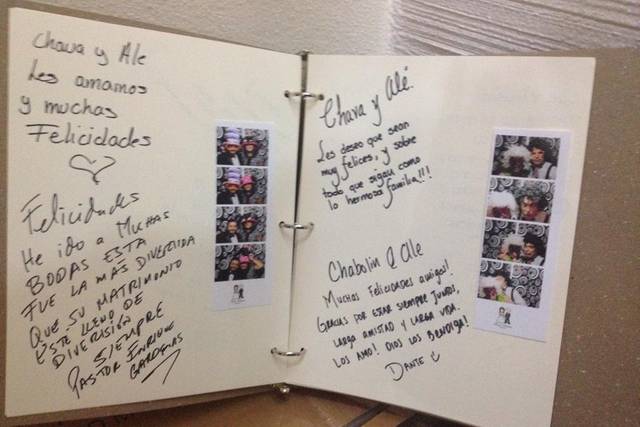 Chava y Ale
Les amamos
y muchas
Felicidades
Felicidades
He ido a muchas
bodas esta
fue la más divertida
que su matrimonio
este lleno de
diversión
siempre
Pastor Enrique
Cardenas
Chava y Alé.
Les deseo que sean
muy felices, y sobre
todo que sigan como
la hermosa familia!!!
Chabolin & Ale
Muchas felicidades amigos!
Gracias por estar siempre juntos,
larga amistad y larga vida.
Los amo! Dios los bendiga!
Dante